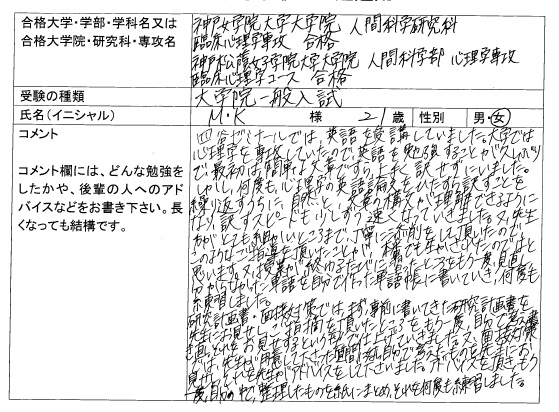 合格大学・学部・学科名又は
合格大学院・研究科・専攻名
神戸女学院大学大学院 人間科学研究科
臨床心理学専攻 合格
神戸松蔭女子学院大学大学院 人間科学部 心理学専攻
臨床心理学コース 合格
受験の種類
大学院一般入試
氏名(イニシャル)
M・K 様 21歳 性別 男・女
コメント
コメント欄には、どんな勉強を
したかや、後輩の人へのアド
バイスなどをお書き下さい。長
くなっても結構です。
四谷ゼミナールでは、英語を受講していました。大学では
心理学を専攻していたので英語を勉強することが久しぶり
で最初は簡単な文章ですら上手く訳せずにいました。
しかし、何度も、心理学の英語論文をひたすら訳すことを
練り返すうちに、自然と、文章の構文が理解できるように
なり、訳すスピードも少しずつ速くなっていきました。又、先生
方がとても細かいところまで、丁寧に添削をして頂いたので
このようなご指導を頂いたことがい 構でも生かされたのではと
思います。又、授業が終わるたびに習ったところをもう一度、見直し
分からなかった単語を自分で作った単語帳に書いていき、何度も
練習しました。
研究計画書・面接対策では、まず、事前に書いてきた研究計画書を
先生にお見せし、ご指摘を頂いたところをもう一度、自分で書き
直し、それをお見せするという形で仕上げていきました。又、面接対策
では、先生が用意して下さった質問を
見せ、それを先生がアドバイスをして下さいました。アドバイスを頂き、もう
一度、自分の中で、整理したものを紙にまとめ、それを何度も練習しました。